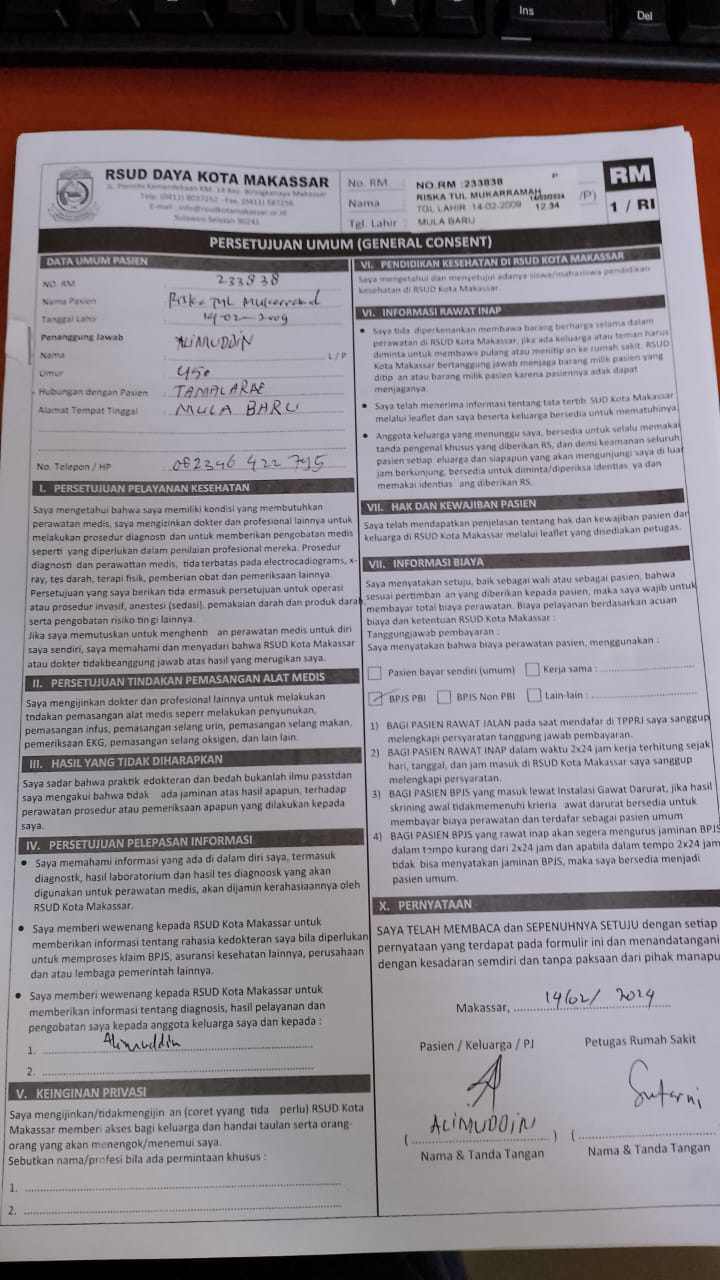 Ins
Del
RSUD DAYA KOTA MAKASSAR
JL. Perintis Kemerdekaan KM. 14 Kec. Biringkanaya Makassar
Telp. (0411) Fax. (0411)
E-mail :
Sulawesi Selatan 90241
No. RM
Nama
Tgl. Lahir
NO.RM :233838
P
RISKA TUL MUKARRAMAH
TGL LAHIR 14-02-2009
12:34
MULA BARU
/P)
RM
1 / RI
PERSETUJUAN UMUM (GENERAL CONSENT)
DATA UMUM PASIEN
NO. RM : 233838
Nama Pasien : Riska TUL
Tanggal Lahir : 14-02-2009
Penanggung Jawab
Nama : ALIMUDDIN L / P
Umur :
Hubungan dengan Pasien : TAMALARAE
Alamat Tempat Tinggal : MULA BARU
No. Telepon / HP : 082346 422 795
I. PERSETUJUAN PELAYANAN KESEHATAN
Saya mengetahui bahwa saya memiliki kondisi yang membutuhkan
perawatan medis, saya mengizinkan dokter dan profesional lainnya untuk
melakukan prosedur diagnosti dan untuk memberikan pengobatan medis
seperti yang diperlukan dalam penilaian profesional mereka. Prosedur
diagnosti dan perawattan medis, tida terbatas pada electrocadiograms, x-
ray, tes darah, terapi fisik, pemberian obat dan pemeriksaan lainnya.
Persetujuan yang saya berikan tida ermasuk persetujuan untuk operasi
atau prosedur invasif, anestesi (sedasi), pemakaian darah dan produk darah
serta pengobatan risiko ting lainnya.
Jika saya memutuskan untuk menghenti an perawatan medis untuk diri
saya sendiri, saya memahami dan menyadari bahwa RSUD Kota Makassar
atau dokter tidakbeanggung jawab atas hasil yang merugikan saya.
II. PERSETUJUAN TINDAKAN PEMASANGAN ALAT MEDIS
Saya mengijinkan dokter dan profesional lainnya untuk melakukan
tndakan pemasangan alat medis seperr melakukan penyunukan,
pemasangan infus, pemasangan selang urin, pemasangan selang makan,
pemeriksaan EKG, pemasangan selang oksigen, dan lain lain.
III. HASIL YANG TIDAK DIHARAPKAN
Saya sadar bahwa praktik edokteran dan bedah bukanlah ilmu passtdan
saya mengakui bahwa tidak ada jaminan atas hasil apapun, terhadap
perawatan prosedur atau pemeriksaan apapun yang dilakukan kepada
saya.
IV. PERSETUJUAN PELEPASAN INFORMASI
• Saya memahami informasi yang ada di dalam diri saya, termasuk
diagnostk, hasil laboratorium dan hasil tes diagnoosk yang akan
digunakan untuk perawatan medis, akan dijamin kerahasiaannya oleh
RSUD Kota Makassar.
• Saya memberi wewenang kepada RSUD Kota Makassar untuk
memberikan informasi tentang rahasia kedokteran saya bila diperlukan
untuk memproses klaim BPJS, asuransi kesehatan lainnya, perusahaan
dan atau lembaga pemerintah lainnya.
• Saya memberi wewenang kepada RSUD Kota Makassar untuk
memberikan informasi tentang diagnosis, hasil pelayanan dan
pengobatan saya kepada anggota keluarga saya dan kepada :
1. Alimuddin
2.
V. KEINGINAN PRIVASI
Saya mengijinkan/tidakmengijin an (coret yyang tida perlu) RSUD Kota
Makassar memberi akses bagi keluarga dan handai taulan serta orang-
orang yang akan menengok/menemui saya.
Sebutkan nama/profesi bila ada permintaan khusus :
1.
2.
VI. PENDIDIKAN KESEHATAN DI RSUD KOTA MAKASSAR
Saya mengetahui dan menyetujui adanya siswa/mahasiswa pendidikan
kesehatan di RSUD Kota Makassar.
VI. INFORMASI RAWAT INAP
• Saya tida diperkenankan membawa barang berharga selama dalam
perawatan di RSUD Kota Makassar, jika ada keluarga atau teman harus
diminta untuk membawa pulang atau menitip an ke rumah sakit. RSUD
Kota Makassar bertanggung jawab menjaga barang milik pasien yang
ditip an atau barang milik pasien karena pasiennya adak dapat
menjaganya.
• Saya telah menerima informasi tentang tata tertib SUD Kota Makassar
melalui leaflet dan saya beserta keluarga bersedia untuk mematuhinya.
• Anggota keluarga yang menunggu saya, bersedia untuk selalu memakai
tanda pengenal khusus yang diberikan RS, dan demi keamanan seluruh
pasien setiap eluarga dan siapapun yang akan mengunjungi saya di luar
jam berkunjung, bersedia untuk diminta/diperiksa identias ya dan
memakai identias ang diberikan RS.
VII. HAK DAN KEWAJIBAN PASIEN
Saya telah mendapatkan penjelasan tentang hak dan kewajiban pasien dan
keluarga di RSUD Kota Makassar melalui leaflet yang disediakan petugas.
VII. INFORMASI BIAYA
Saya menyatakan setuju, baik sebagai wali atau sebagai pasien, bahwa
sesuai pertimban an yang diberikan kepada pasien, maka saya wajib untuk
membayar total biaya perawatan. Biaya pelayanan berdasarkan acuan
biaya dan ketentuan RSUD Kota Makassar :
Tanggungjawab pembayaran :
Saya menyatakan bahwa biaya perawatan pasien, menggunakan :
Pasien bayar sendiri (umum) Kerja sama :
BPJS PBI BPJS Non PBI Lain-lain :
1) BAGI PASIEN RAWAT JALAN pada saat mendafar di TPPRJ saya sanggup
melengkapi persyaratan tanggung jawab pembayaran.
2) BAGI PASIEN RAWAT INAP dalam waktu 2x24 jam kerja terhitung sejak
hari, tanggal, dan jam masuk di RSUD Kota Makassar saya sanggup
melengkapi persyaratan.
3) BAGI PASIEN BPJS yang masuk lewat Instalasi Gawat Darurat, jika hasil
skrining awal tidakmemenuhi krieria awat darurat bersedia untuk
membayar biaya perawatan dan terdafar sebagai pasien umum
4) BAGI PASIEN BPJS yang rawat inap akan segera mengurus jaminan BPJS
dalam tempo kurang dari 2x24 jam dan apabila dalam tempo 2x24 jam
tidak bisa menyatakan jaminan BPJS, maka saya bersedia menjadi
pasien umum.
X. PERNYATAAN
SAYA TELAH MEMBACA dan SEPENUHNYA SETUJU dengan setiap
pernyataan yang terdapat pada formulir ini dan menandatangani
dengan kesadaran semdiri dan tanpa paksaan dari pihak manapu
Makassar, 14/02/ 2024
Pasien / Keluarga / PJ Petugas Rumah Sakit
Sutarni
( ALIMUDDIN ) (
Nama & Tanda Tangan Nama & Tanda Tangan